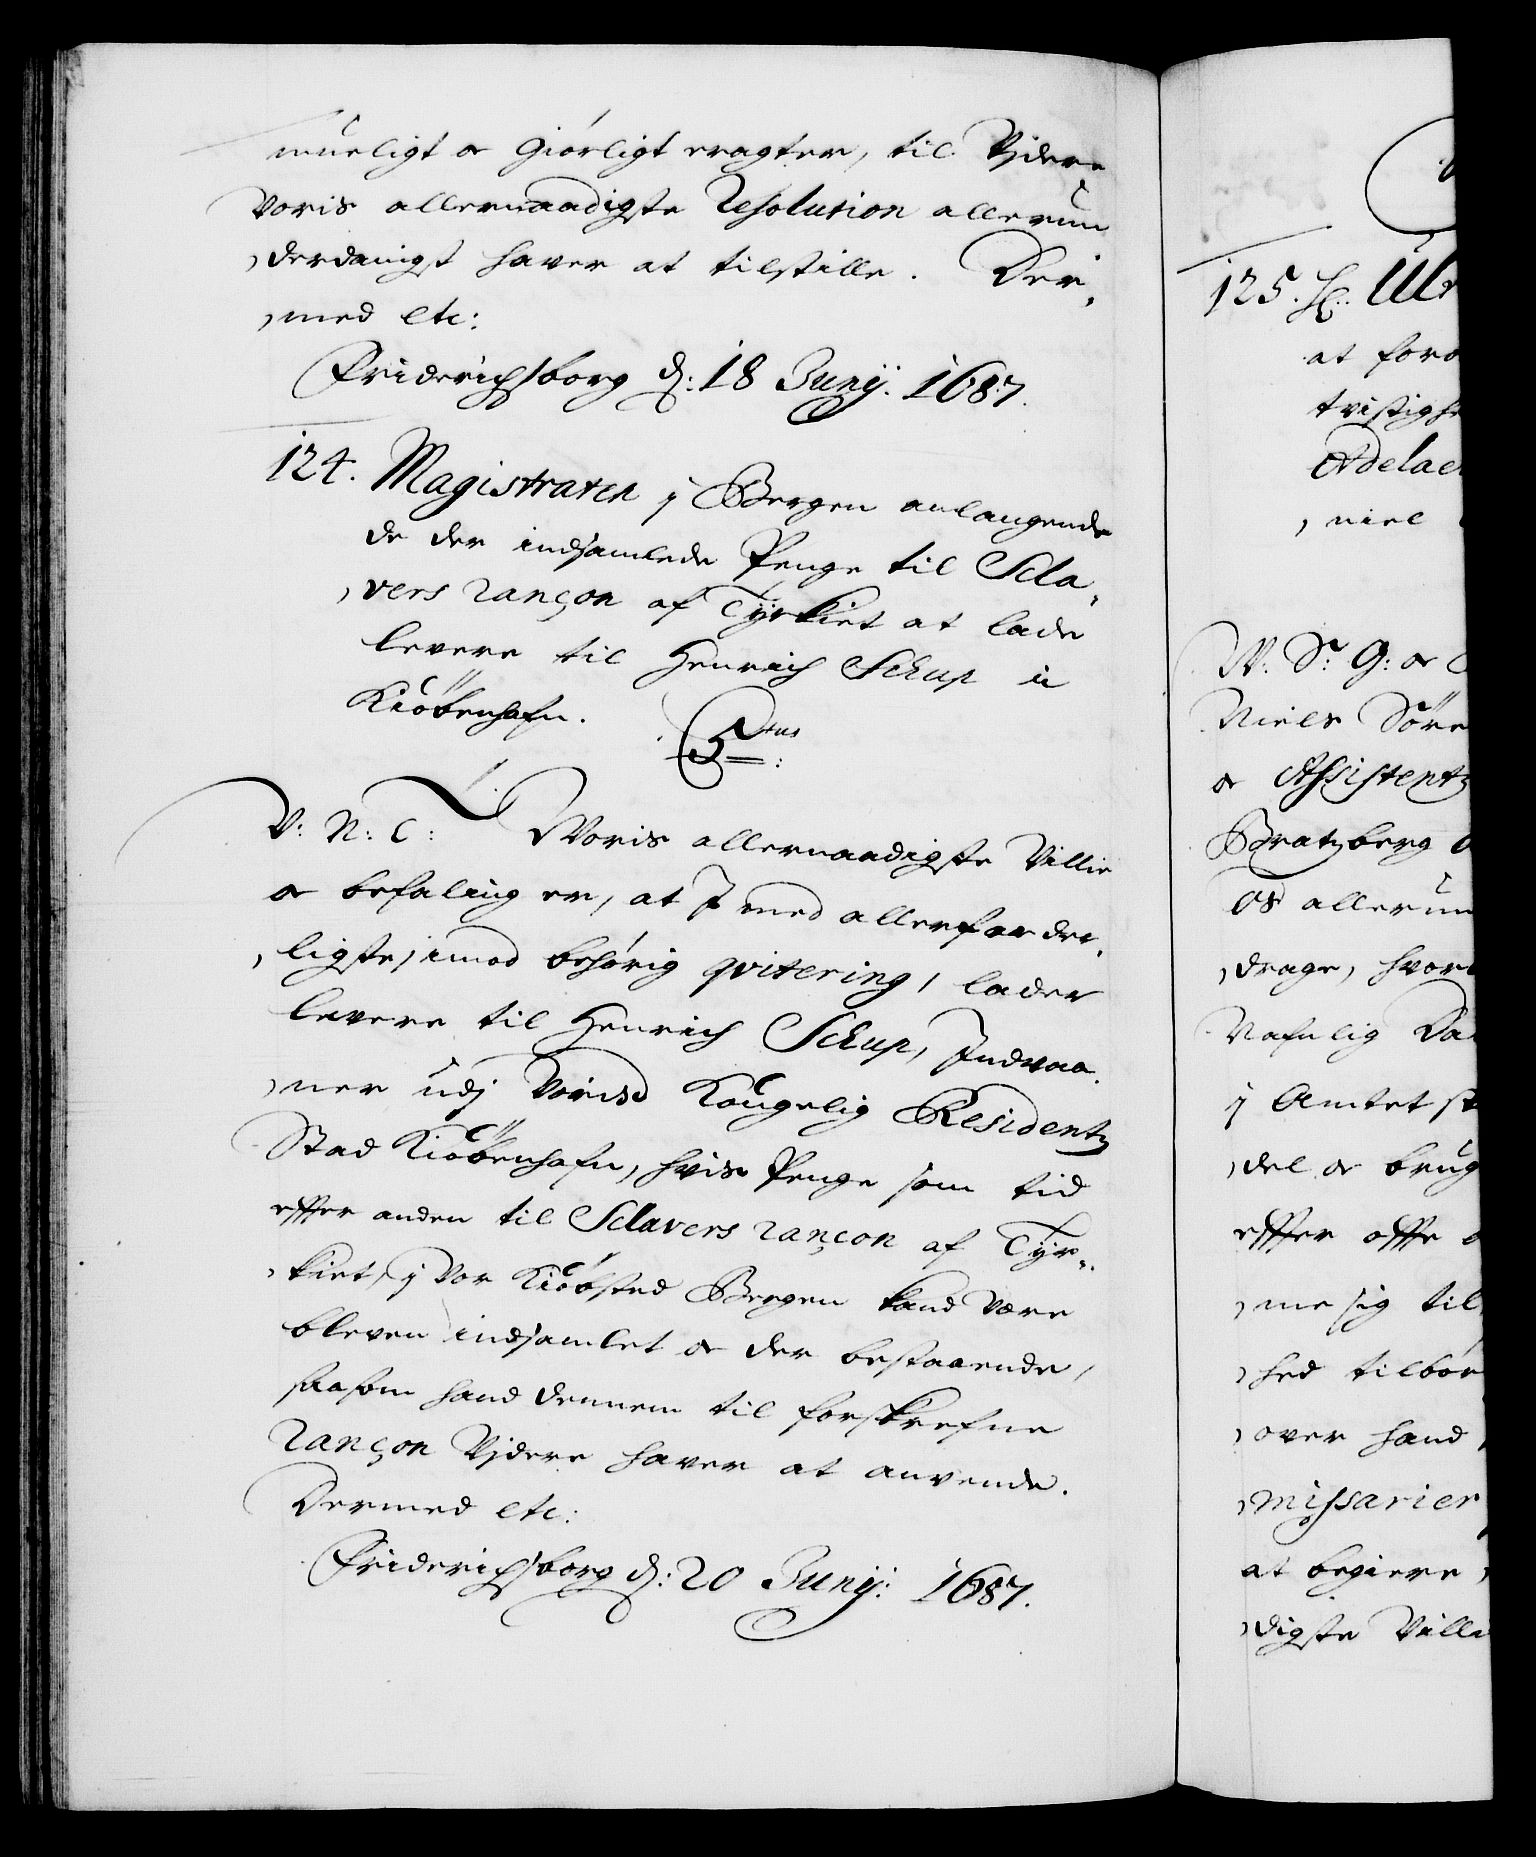 mueligt oc giörligt eragter, til Vjdere
Voris allernaadigste Resolution allerun
derdanigst haver at tilstille. Der,
,med etc:
Friderichsborg d: 18 Junij: 1687.
124. Magistraten j Bergen anlangende
de der indsamlede Penge til Scla,
,vers rançon af Tyrkiet at lade
levere til Henrich Schup i
Kiöbenhafn.
C 5tus:
V: N: C: Voris allernaadigste Villie
oc befaling er, at I med allerforder,
,ligste, imod behörig qvitering, lader
levere til Henrich Schup, Indvaa,
,ner udj Vorisd Kongelig Residentz
Stad Kiöbenhafn, hvis Penge som tid
effter anden til Sclavers rançon af Tyr,,
,kiet, j Vor Kiöbsted Bergen kand være
bleven indsamlet oc der bestaaende,
saasom hand dennem til forskrefne
rançon Vjdere haver at anvende.
Dermed etc:
Friderichsborg d: 20 Junij: 1687.
125. H. Ulr
at foro
tvistighe
Adelae
, niel
W. Sr. G: oc
Niels Söre
oc Assistentz
Bratzberg
os allerun
,drage, hvor
Nafnlig Da
j Amtet st
,del oc brug
effter offte
,me sig til
,hed tilbör
,over hand
,missarier
at begiere,
,digste Villi